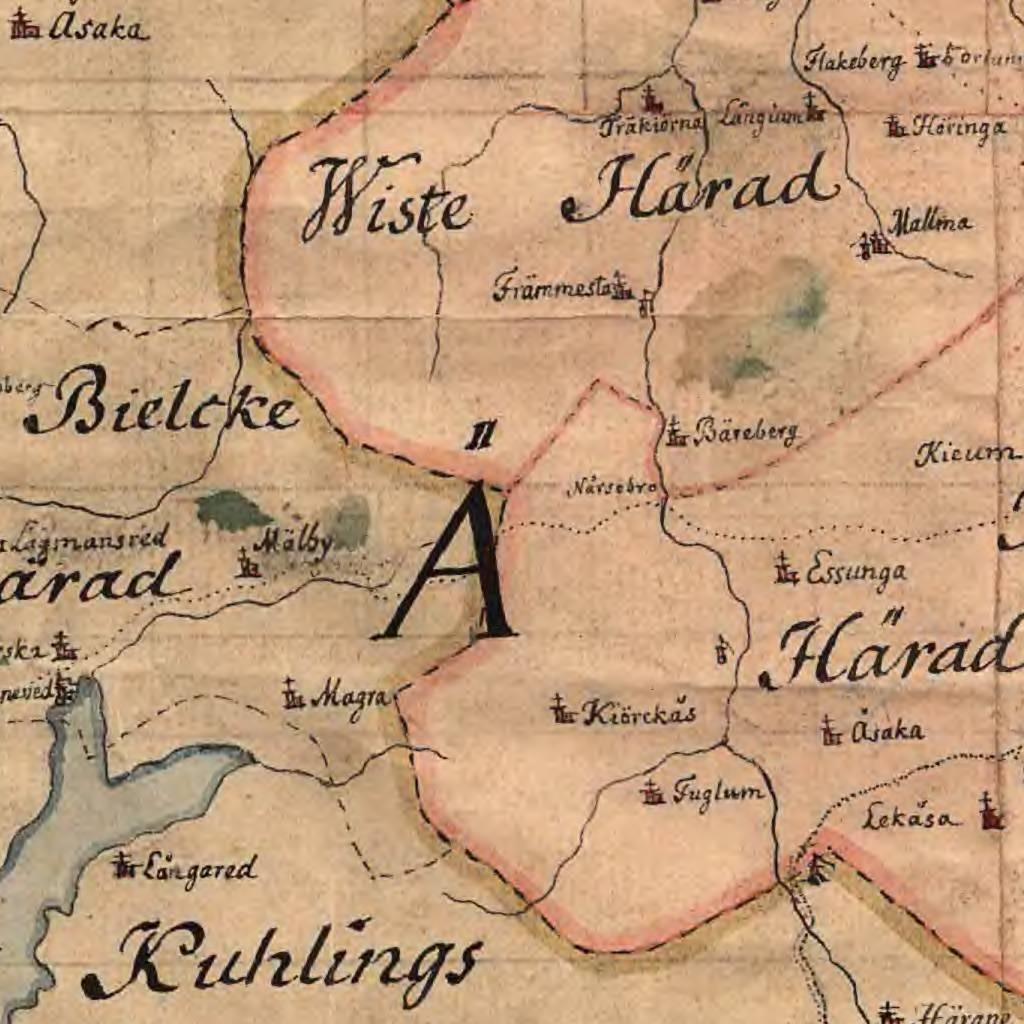 Åsaka
Flakeberg
Träkiörna
Längium
Höringa
Wiste Härad
Mallma
Främmesta
Bielcke
Bäreberg
Kieum
Nårsebro
Lagmansred
Mälby
ärad
A
Essunga
Härad
Magra
Kiörckås
Åsaka
Fuglum
Lekåsa
Långared
Kuhlings